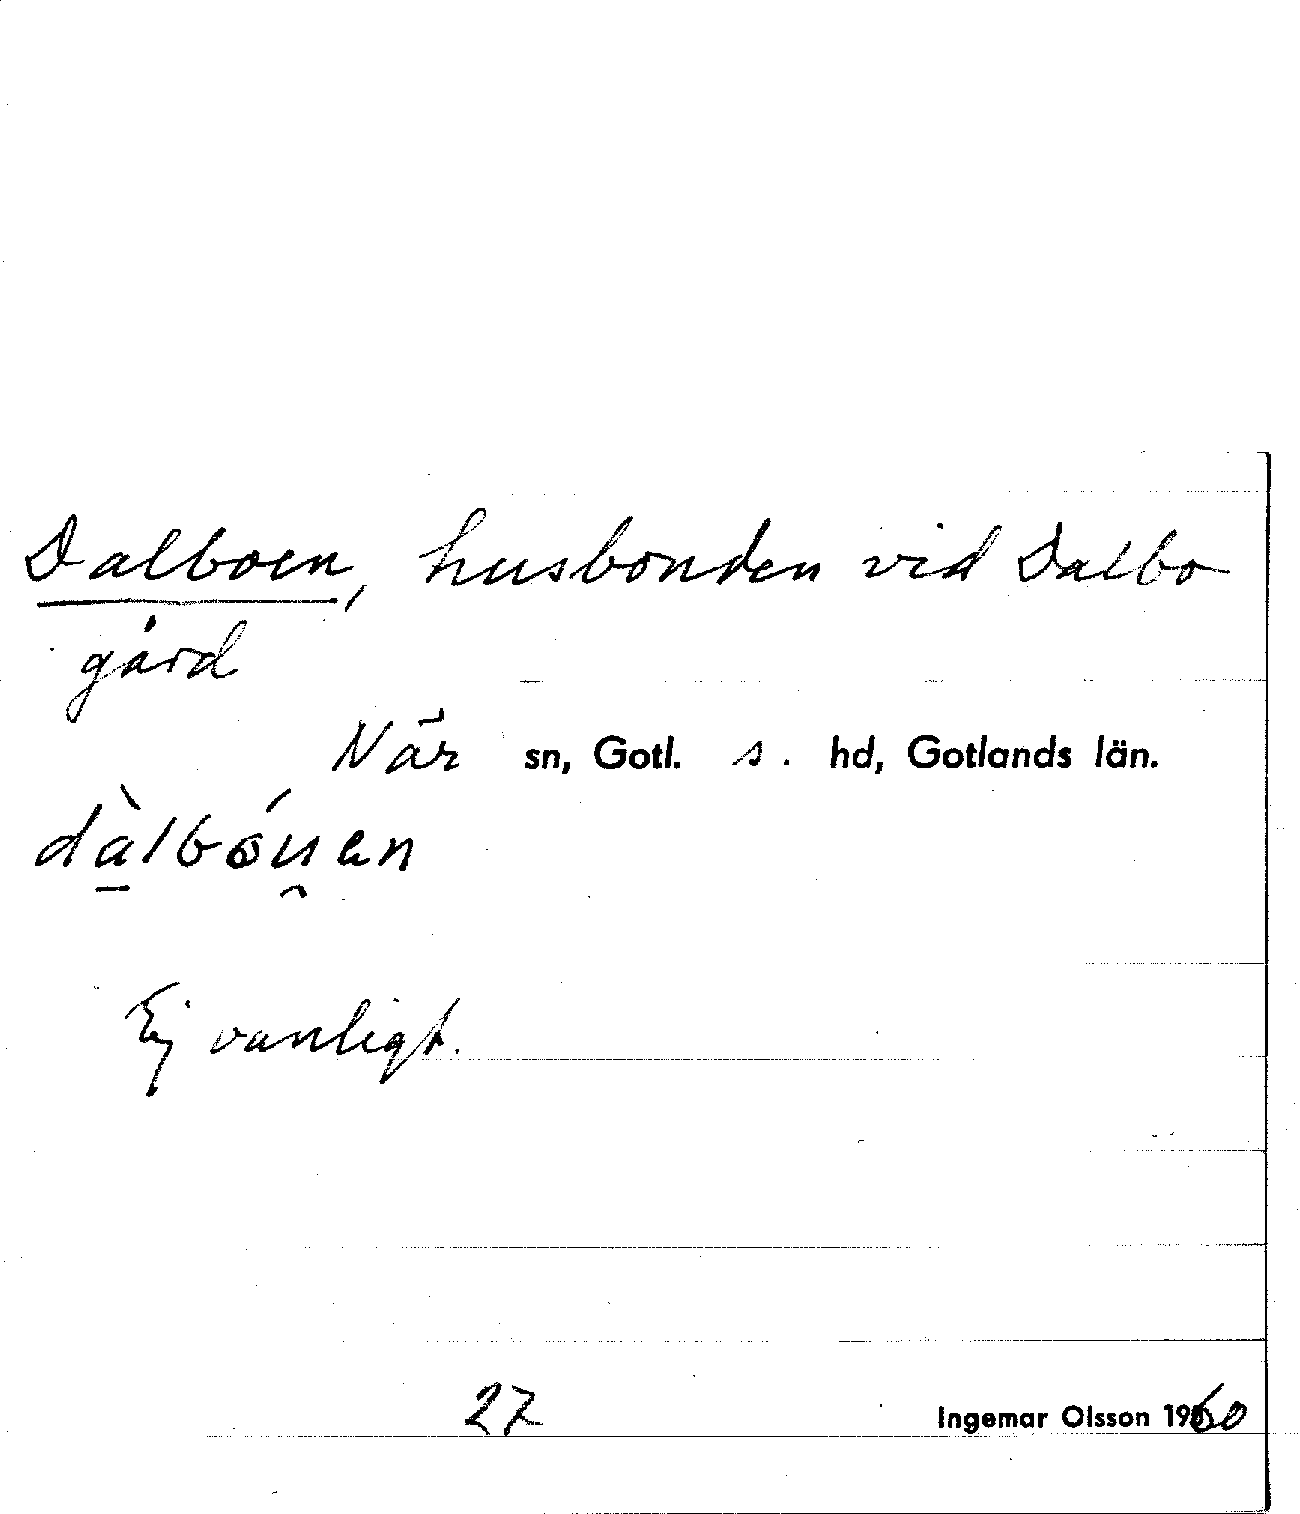 Dalboen, husbonden vid Dalbo
gård
När sn, Gotl. s. hd, Gotlands län.
dà̱lbóu̯en
Ej vanligt.
27 Ingemar Olsson 1960